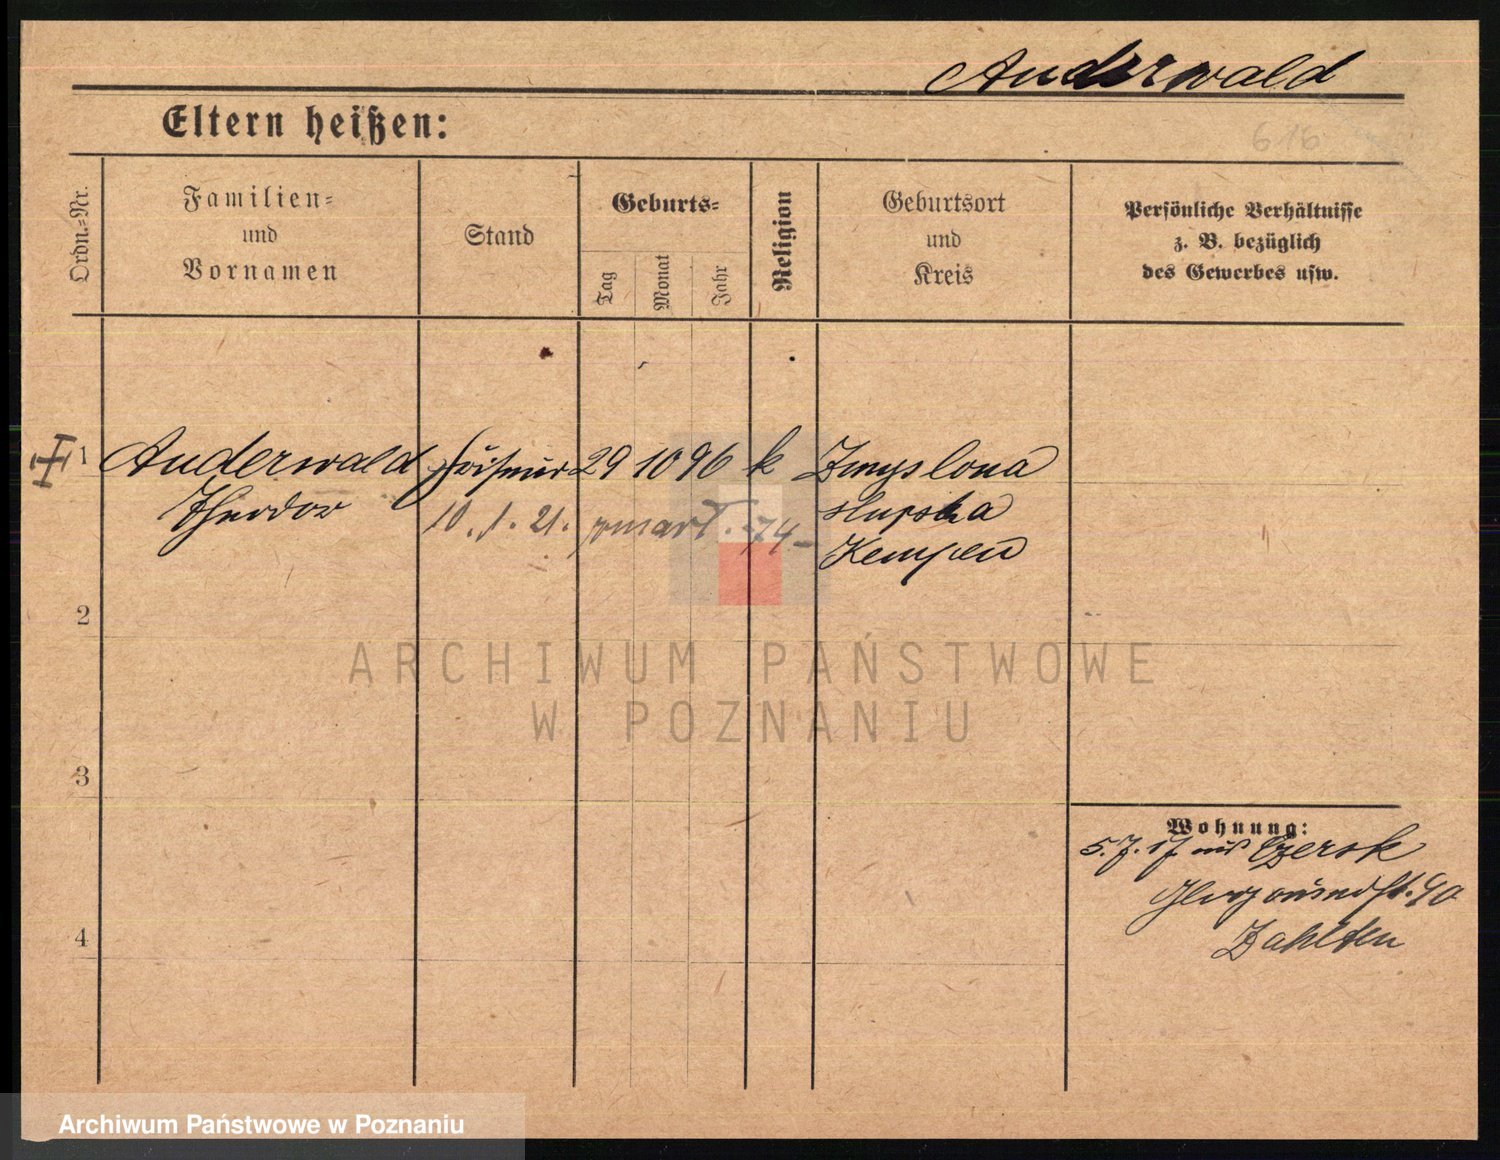 Anderwald
Eltern heißen:
616
Ordn.-Nr.
Familien-
und
Vornamen
Stand
Geburts-
Tag
Monat
Jahr
Religion
Geburtsort
und
Kreis
Persönliche Verhältnisse
z. B. bezüglich
des Gewerbes usw.
1 Anderwald 29 10 96 k Zmyslona
Theodor slupska
10. 1. 21. zmarł. 74 Kempen
2
ARCHIWUM PAŃSTWOWE
W POZNANIU
3
Wohnung:
5. 7. 17 aus Czersk
Glogauerstr. 90
4
Archiwum Państwowe w Poznaniu